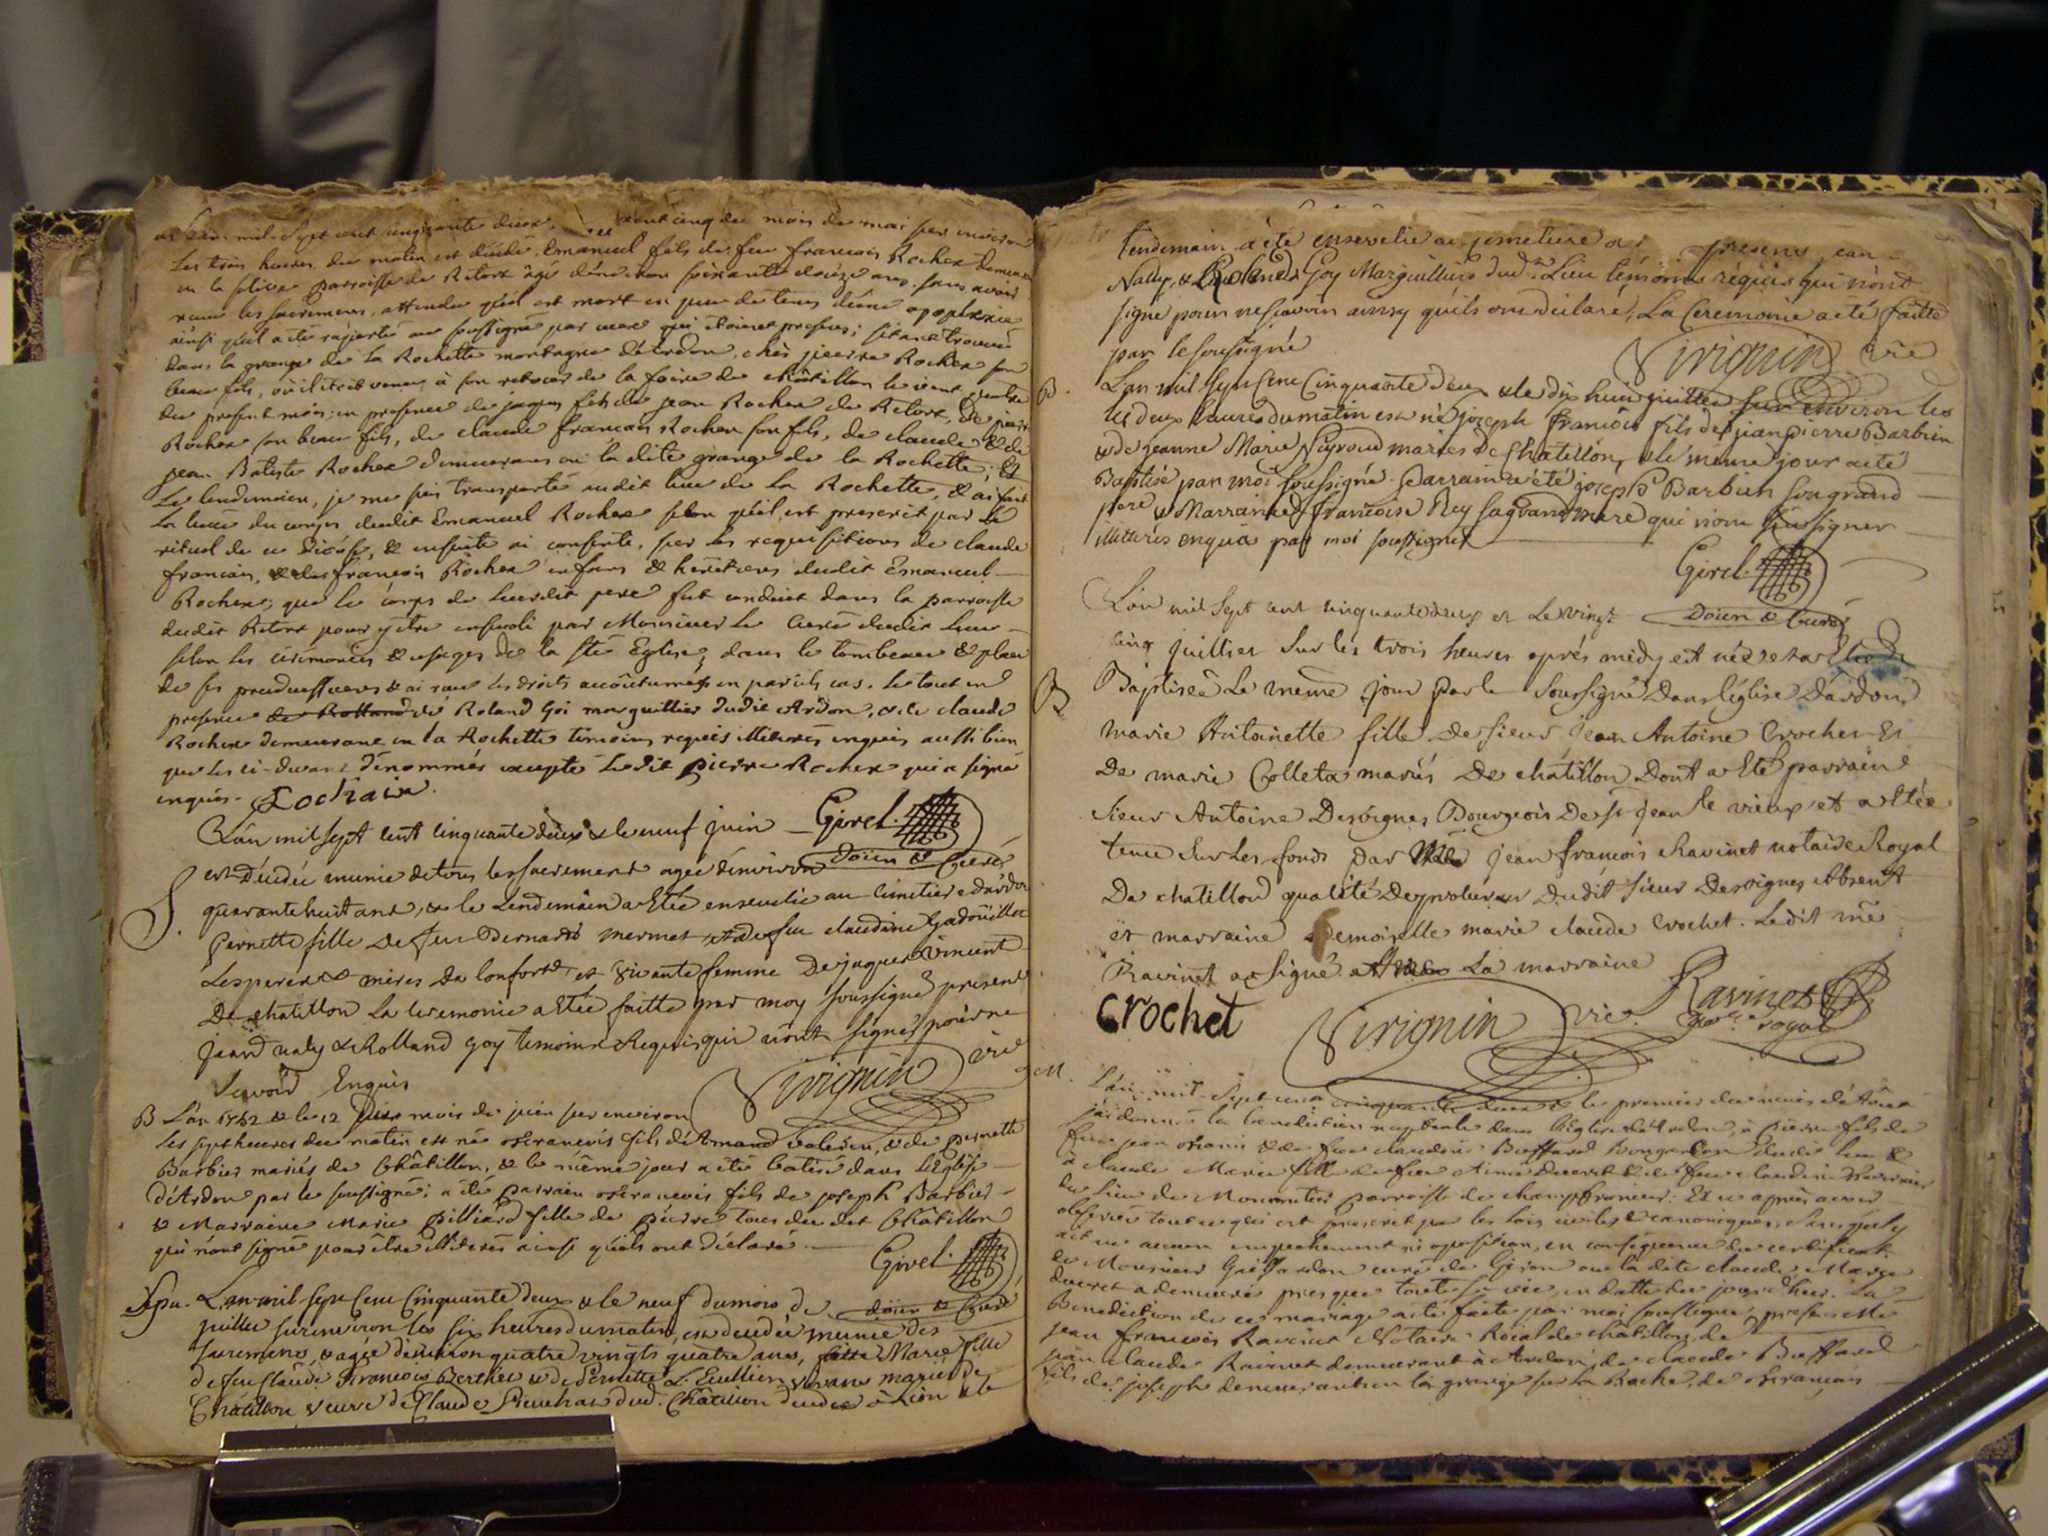 L'an mil sept cent cinquante deux, vint cinq du mois de mai sur environ
les trois heures du matin est décédé Emanuel fils de feu françois Rochex demeurant
en la parroisse de Retort âgé d'environ soixante douze ans, sans avoir
receu les sacremens, attendu qu'il est mort en peu de tems d'une apoplexie
ainsi qu'il a été raporté au soussigné par ceux qui étoient presens; s'étant trouvé
dans la grange de la Rochette montagne d'Ardon, chés pierre Rochex son
beau fils, où il étoit venu à son retour de la foire de châtillon le vint quatre
du present mois; en presence de jaques fils de jean Rochex de Retort, de pierre
Rochex son beau fils, de claude françois Rochex son fils, de claude & de
jean Batiste Rochex demeurans en la dite grange de la Rochette; Et
Le lendemain, je me suis transporté audit lieu de la Rochette, & ai fait
la levée du corps dudit Emanuel Rochex selon qu'il est prescrit par le
rituel de ce Diocése, & ensuite ai consenti, sur les requisitions de claude
francois, & de françois Rochex enfans & heritiers dudit Emanuel
Rochex, que le corps de leurdit pere fut conduit dans la parroisse
dudit Retort pour y être enseveli par Monsieur le Curé dudit lieu
selon les cérémonies & usages de la ste Eglise, dans le tombeau & place
de ses predecesseurs & ai receu les droits accoûtumés en pareils cas. Le tout en
presence de Rolland de Roland Goi marguillier dudit Ardon, & de claude
Rochex demeurant en la Rochette témoins requis illiterés enquis aussi bien
que les ci-devant dénommés excepté ledit pierre Rochex qui a signé
enquis. Rochaix
L'an mil sept cent cinquante deux & le neuf juin Girel
est Décédée munie de tous les sacrement agée d'environ Doïen & Curé
S. quarante huit ans, & le Lendemain a Etée ensevelie au cimetiere d'ardon
Pernette fille De feu Bernard mermet, et de feu claudine
Les pere et meres De Confort et vivante femme De jaques Vincent
De chatillon La Ceremonie a Etée faitte par moy soussigné present
jean naly & Rolland goy temoins Requis qui n'ont signés pour ne
scavoir Enquis Virignin vic
B L'an 1752 & le 12 mois de juin sur environ
les sept heures du matin est né françois fils d'Armand & de pernette
Barbier mariés de Châtillon, & le même jour a été batisé dans l'Eglise
d'Ardon par le soussigné; a été parrain françois fils de joseph Barbier
& Marraine Marie pilliard fille de pierre tous dudit Châtillon
qui n'ont signé pour être illiterés ainsi qu'ils ont déclaré. Girel
Sepu. L'an mil sept Cent Cinquante deux & le neuf du mois de Doïen & Curé
juillet sur environ les six heures du matin, est decedée munie des
sacremens & agée d'environ quatre vingts quatre ans, Marie fille
de feu Claude François Berthet & de Pernette vivans mariés de
Châtillon veuve de Claude dud. Châtillon & le
lendemain a été ensevelie au cimetiere presens jean
Nally, & Rolend Goy Marguilliers dud. Lieu témoins requis qui n'ont
signé pour ne scavoir ainsy qu'ils ont déclaré, La Ceremonie a été faitte
par le soussigné Virignin vic
B. L'an mil sept Cent Cinquante deux & le dix huit juillet sur environ les
les deux heures du matin est né joseph françois fils de jean pierre Barbier
& de jeanne Marie Neyroud mariés de Chatillon, & le meme jour a été
Baptisé par moi soussigné. Parrain a été joseph Barbier son grand
pere & Marraine françoise Rey sa grand mere qui n'ont sceu signer
illiterés enquis par moi soussigné Girel
L'an mil sept cent cinquante deux et Le vingt Doïen & Curé
cinq juilliet sur les trois heures après midy est née et a Eté
B Baptisée Le meme jour par le soussigné Dans l'église D'ardon
marie Antoinette fille De sieur jean Antoine Crochet Et
De marie Colleta mariés De châtillon Dont a Eté parrain
sieur Antoine Desvignes Bourgeois De st jean le vieux et a Etée
tenue sur Les fonds par jean françois Ravinet notaire Royal
De chatillon qualité De procureur Dudit sieur Desvignes Absent
et marraine Demoiselle marie claude Crochet. Ledit me
Ravinet a signé La marraine
Crochet Virignin vic. Ravinet
royal
M. L'an mil sept cent cinquante deux & le premier du mois d'Aoust
j'ai donné la benediction nuptiale dans l'Eglise d'Ardon, à pierre fils de
feu jean & de feue claudine Buffard dudit lieu &
à claude Marie fille de feu Aimé Ducret & de feue claudine
du lieu de parroisse de champfromier: Et ce aprés avoir
observé tout ce qui est prescrit par les lois civiles & canoniques, sans qu'il y
ait eu aucun empechement ni oposition, en consequence du certificat
de Monsieur curé de Giron où la dite claude Marie
ducret a demeuré presque toute sa vie, en datte du jour d'hier. La
Benediction de ce mariage a été faite par moi soussigné, presens Me
jean françois Ravinet Notaire Roial de châtillon, de
jean claude Ravinet demeurant à Ardon, de claude Buffard
fils de joseph demeurant en la grange sur la Roche, de françois